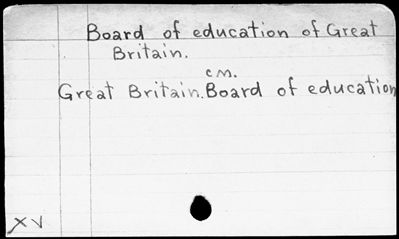 Board of education of Great
Britain.
cm.
Great Britain. Board of education
XV